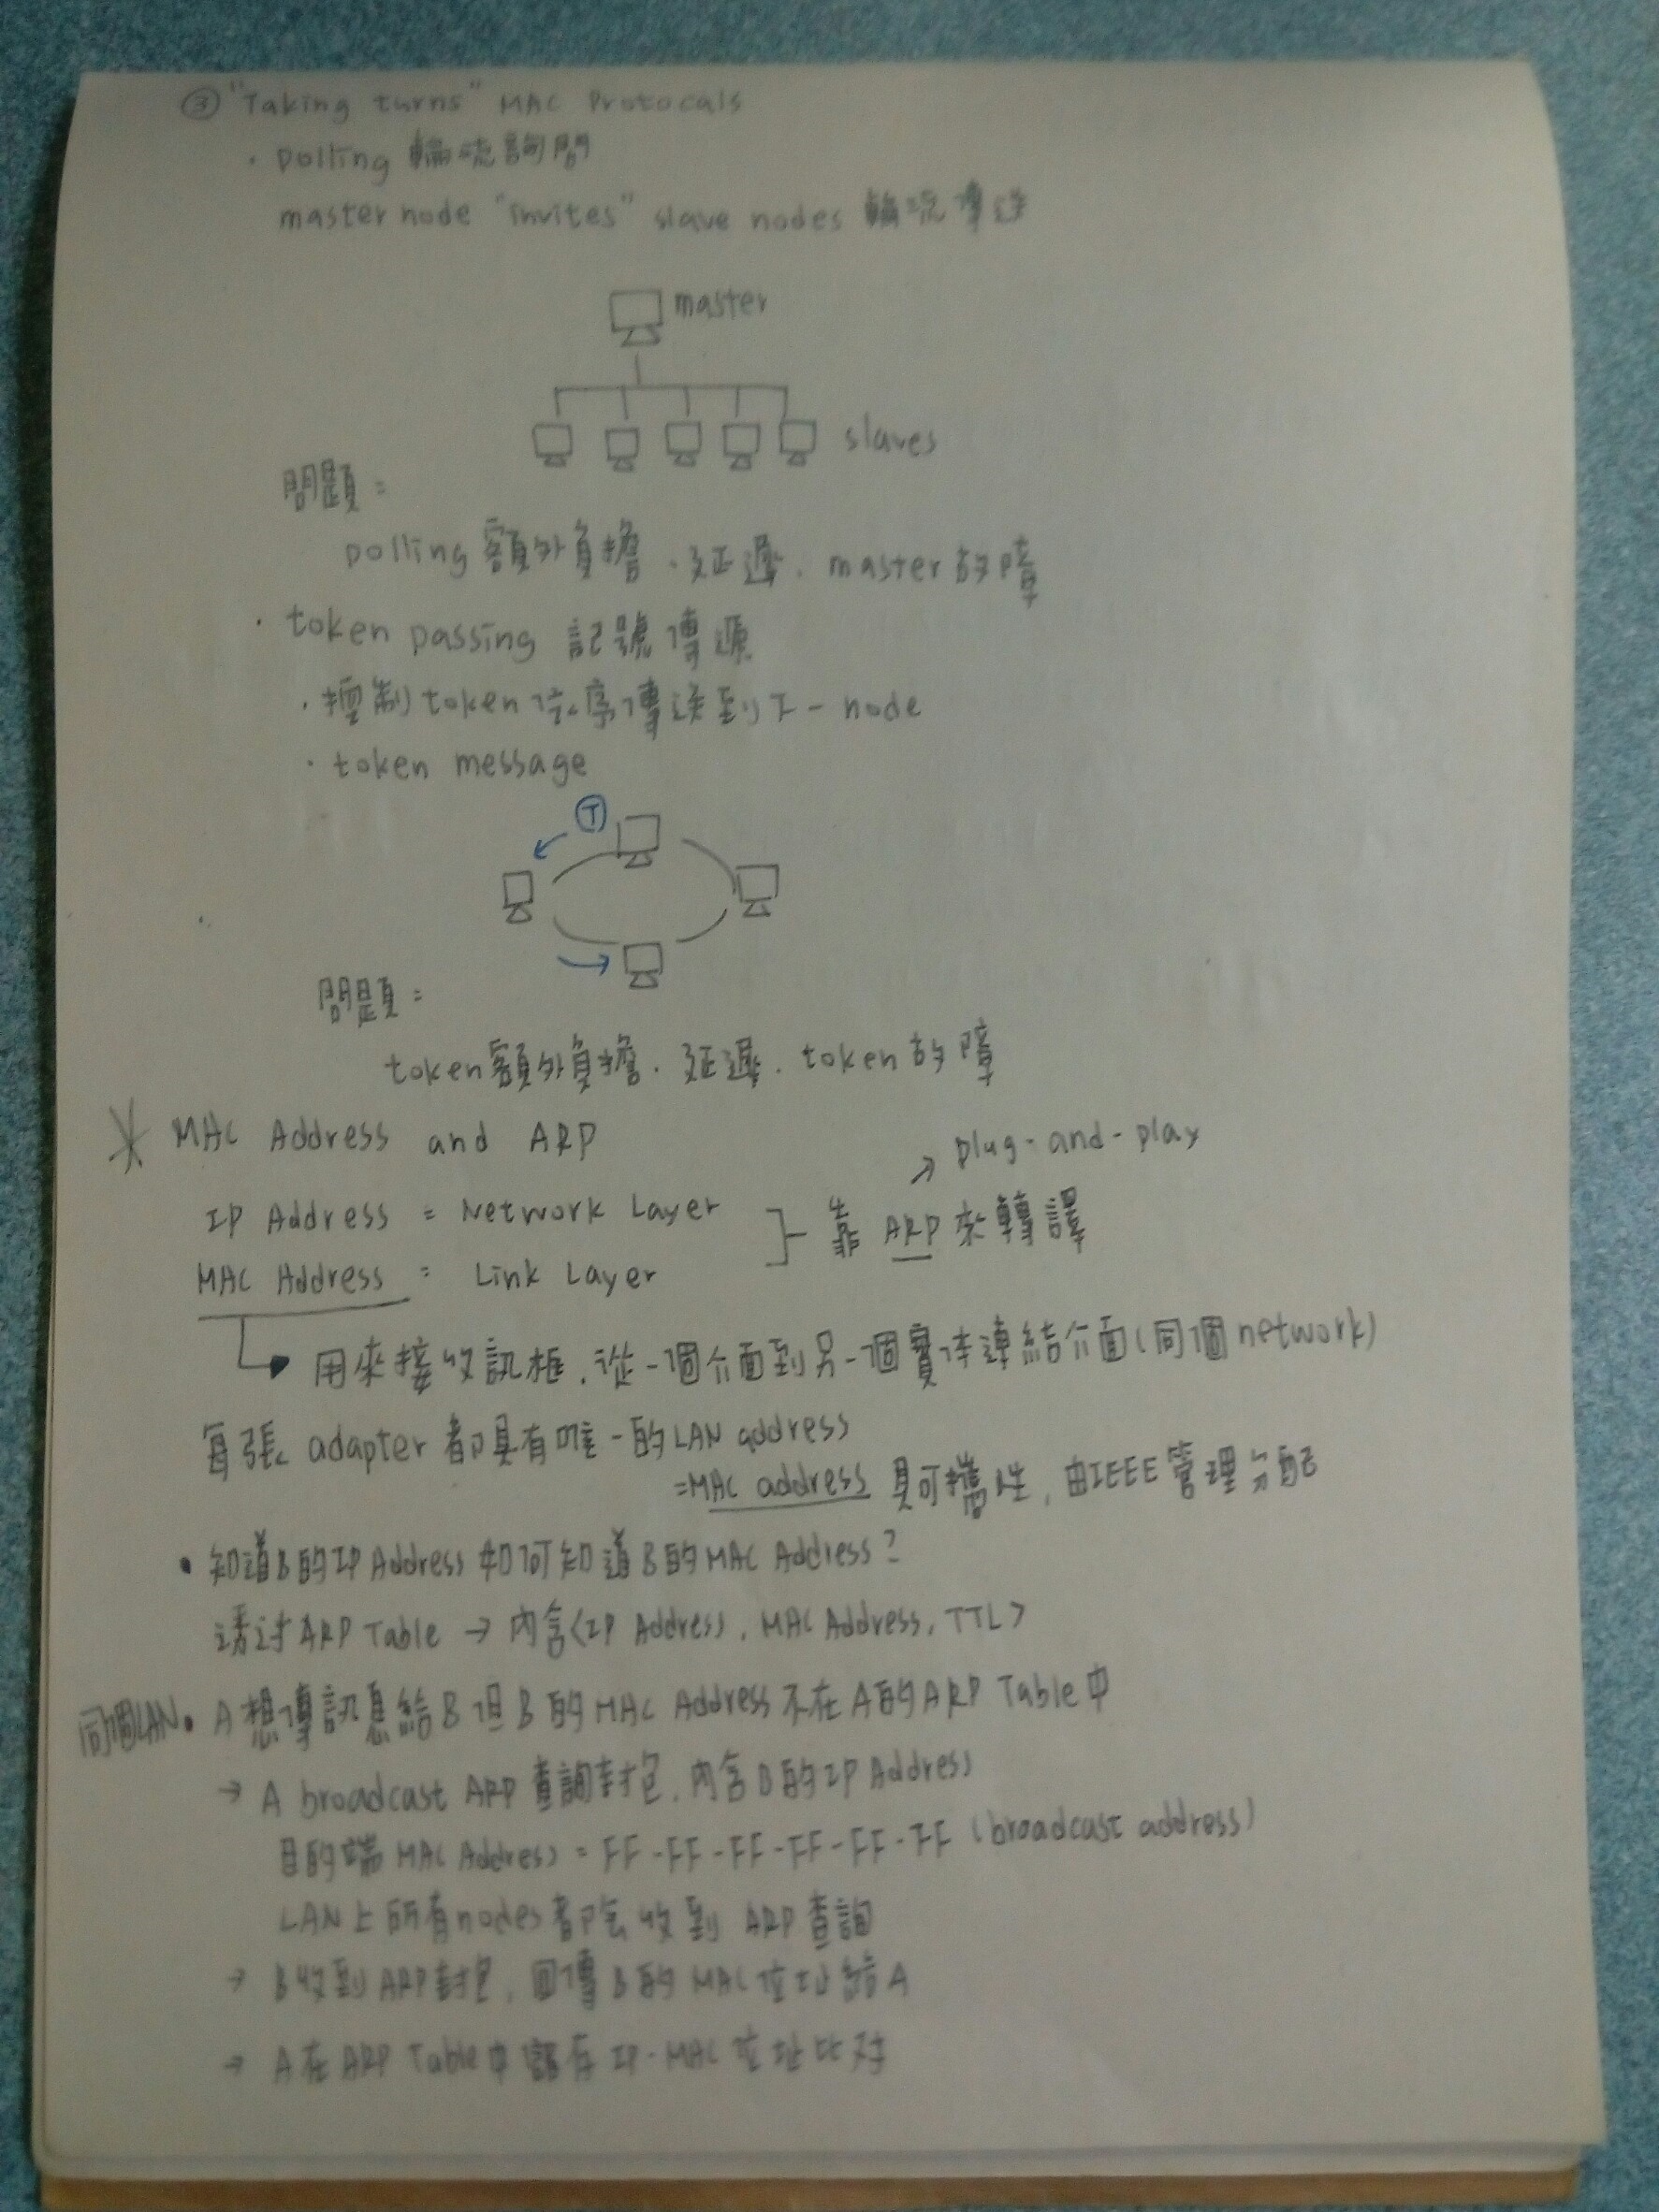 ③ "Taking turns" MAC Protocals
· polling 輪流詢問
master node "invites" slave nodes 輪流傳送
master
slaves
問題:
polling 額外負擔、延遲、master 故障
· token passing 記號傳遞
· 控制 token 依序傳送到下一 node
· token message
T
問題:
token 額外負擔、延遲、token 故障
* MAC Address and ARP
→ plug-and-play
IP Address = Network Layer
靠 ARP 來轉譯
MAC Address = Link Layer
用來接收訊框,從一個介面到另一個實体連結介面(同個 network)
每張 adapter 都具有唯一的 LAN address
=MAC address 具可攜性, 由IEEE管理分配
• 知道B的IP Address 如何知道B的MAC Address?
透过 ARP Table → 內含<IP Address, MAC Address, TTL>
同個LAN • A想傳訊息給B但B的MAC Address不在A的ARP Table中
→ A broadcast ARP 查詢封包, 內含B的IP Address
目的端 MAC Address = FF-FF-FF-FF-FF-FF (broadcast address)
LAN上所有nodes都会收到 ARP 查詢
→ B收到ARP封包, 回傳B的MAC位址給A
→ A在ARP Table中儲存IP-MAC位址比对